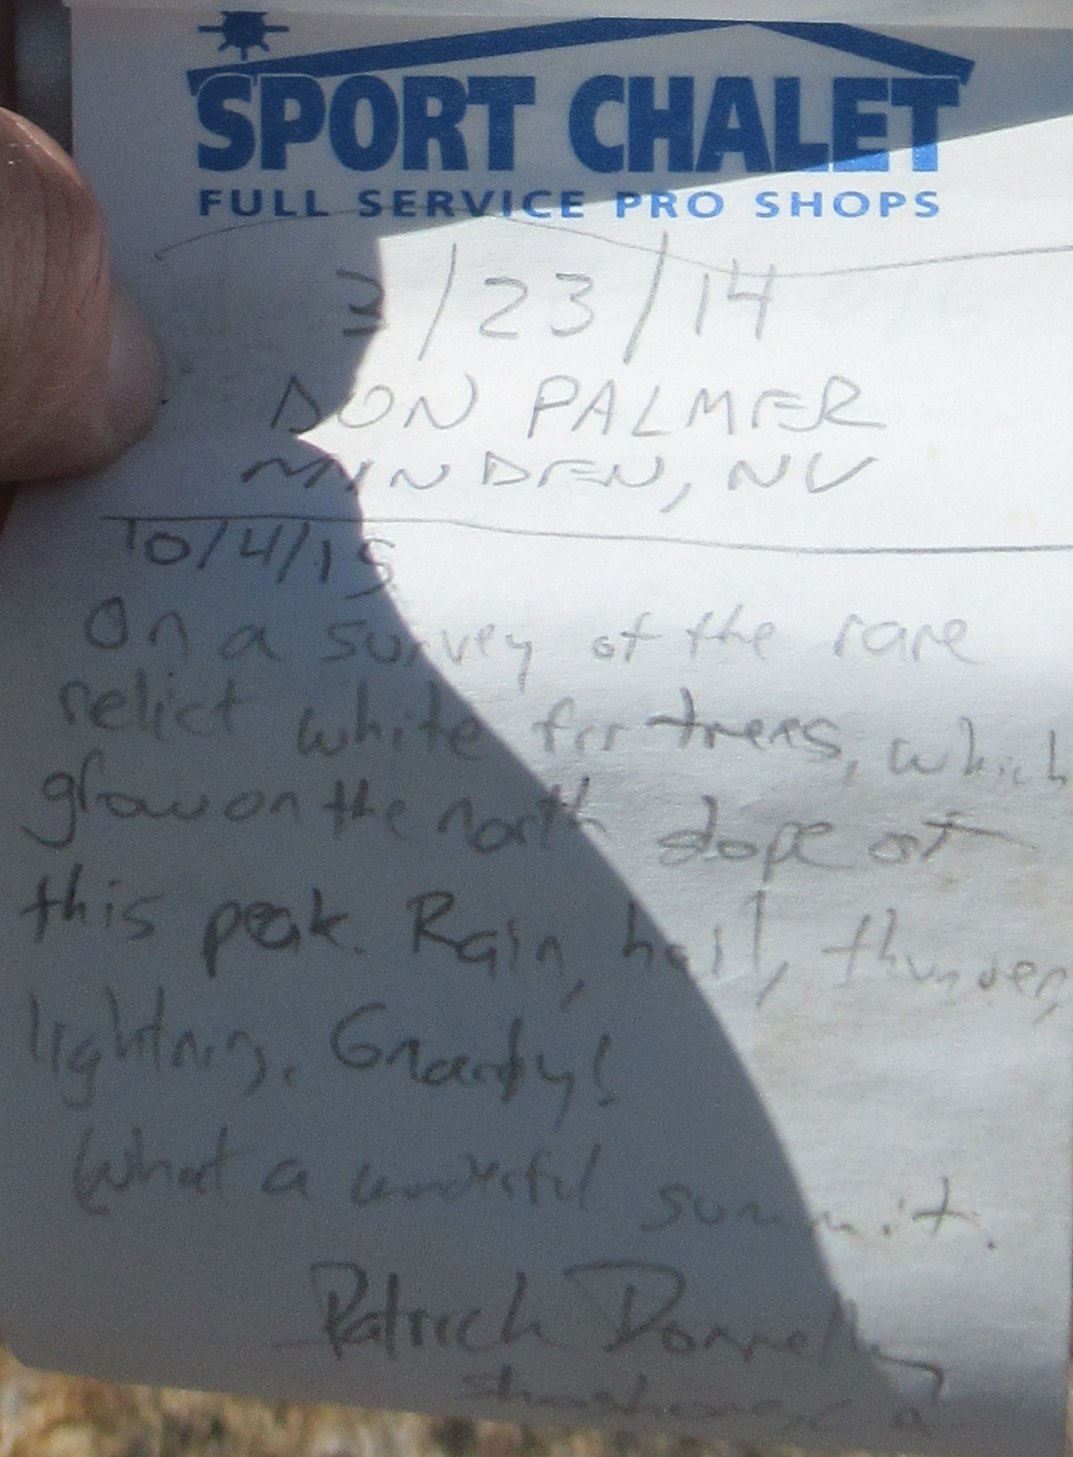 SPORT CHALET
FULL SERVICE PRO SHOPS
/23/14
DON PALMER
MINDEN, NV
10/4/15
On a survey of the rare
relict white fir trees, which
grow on the north slope of
this peak. Rain, hail, thunder,
lightning. Gnarly!
What a wonderful summit.
Patrick Donnelly
Shoshone, CA